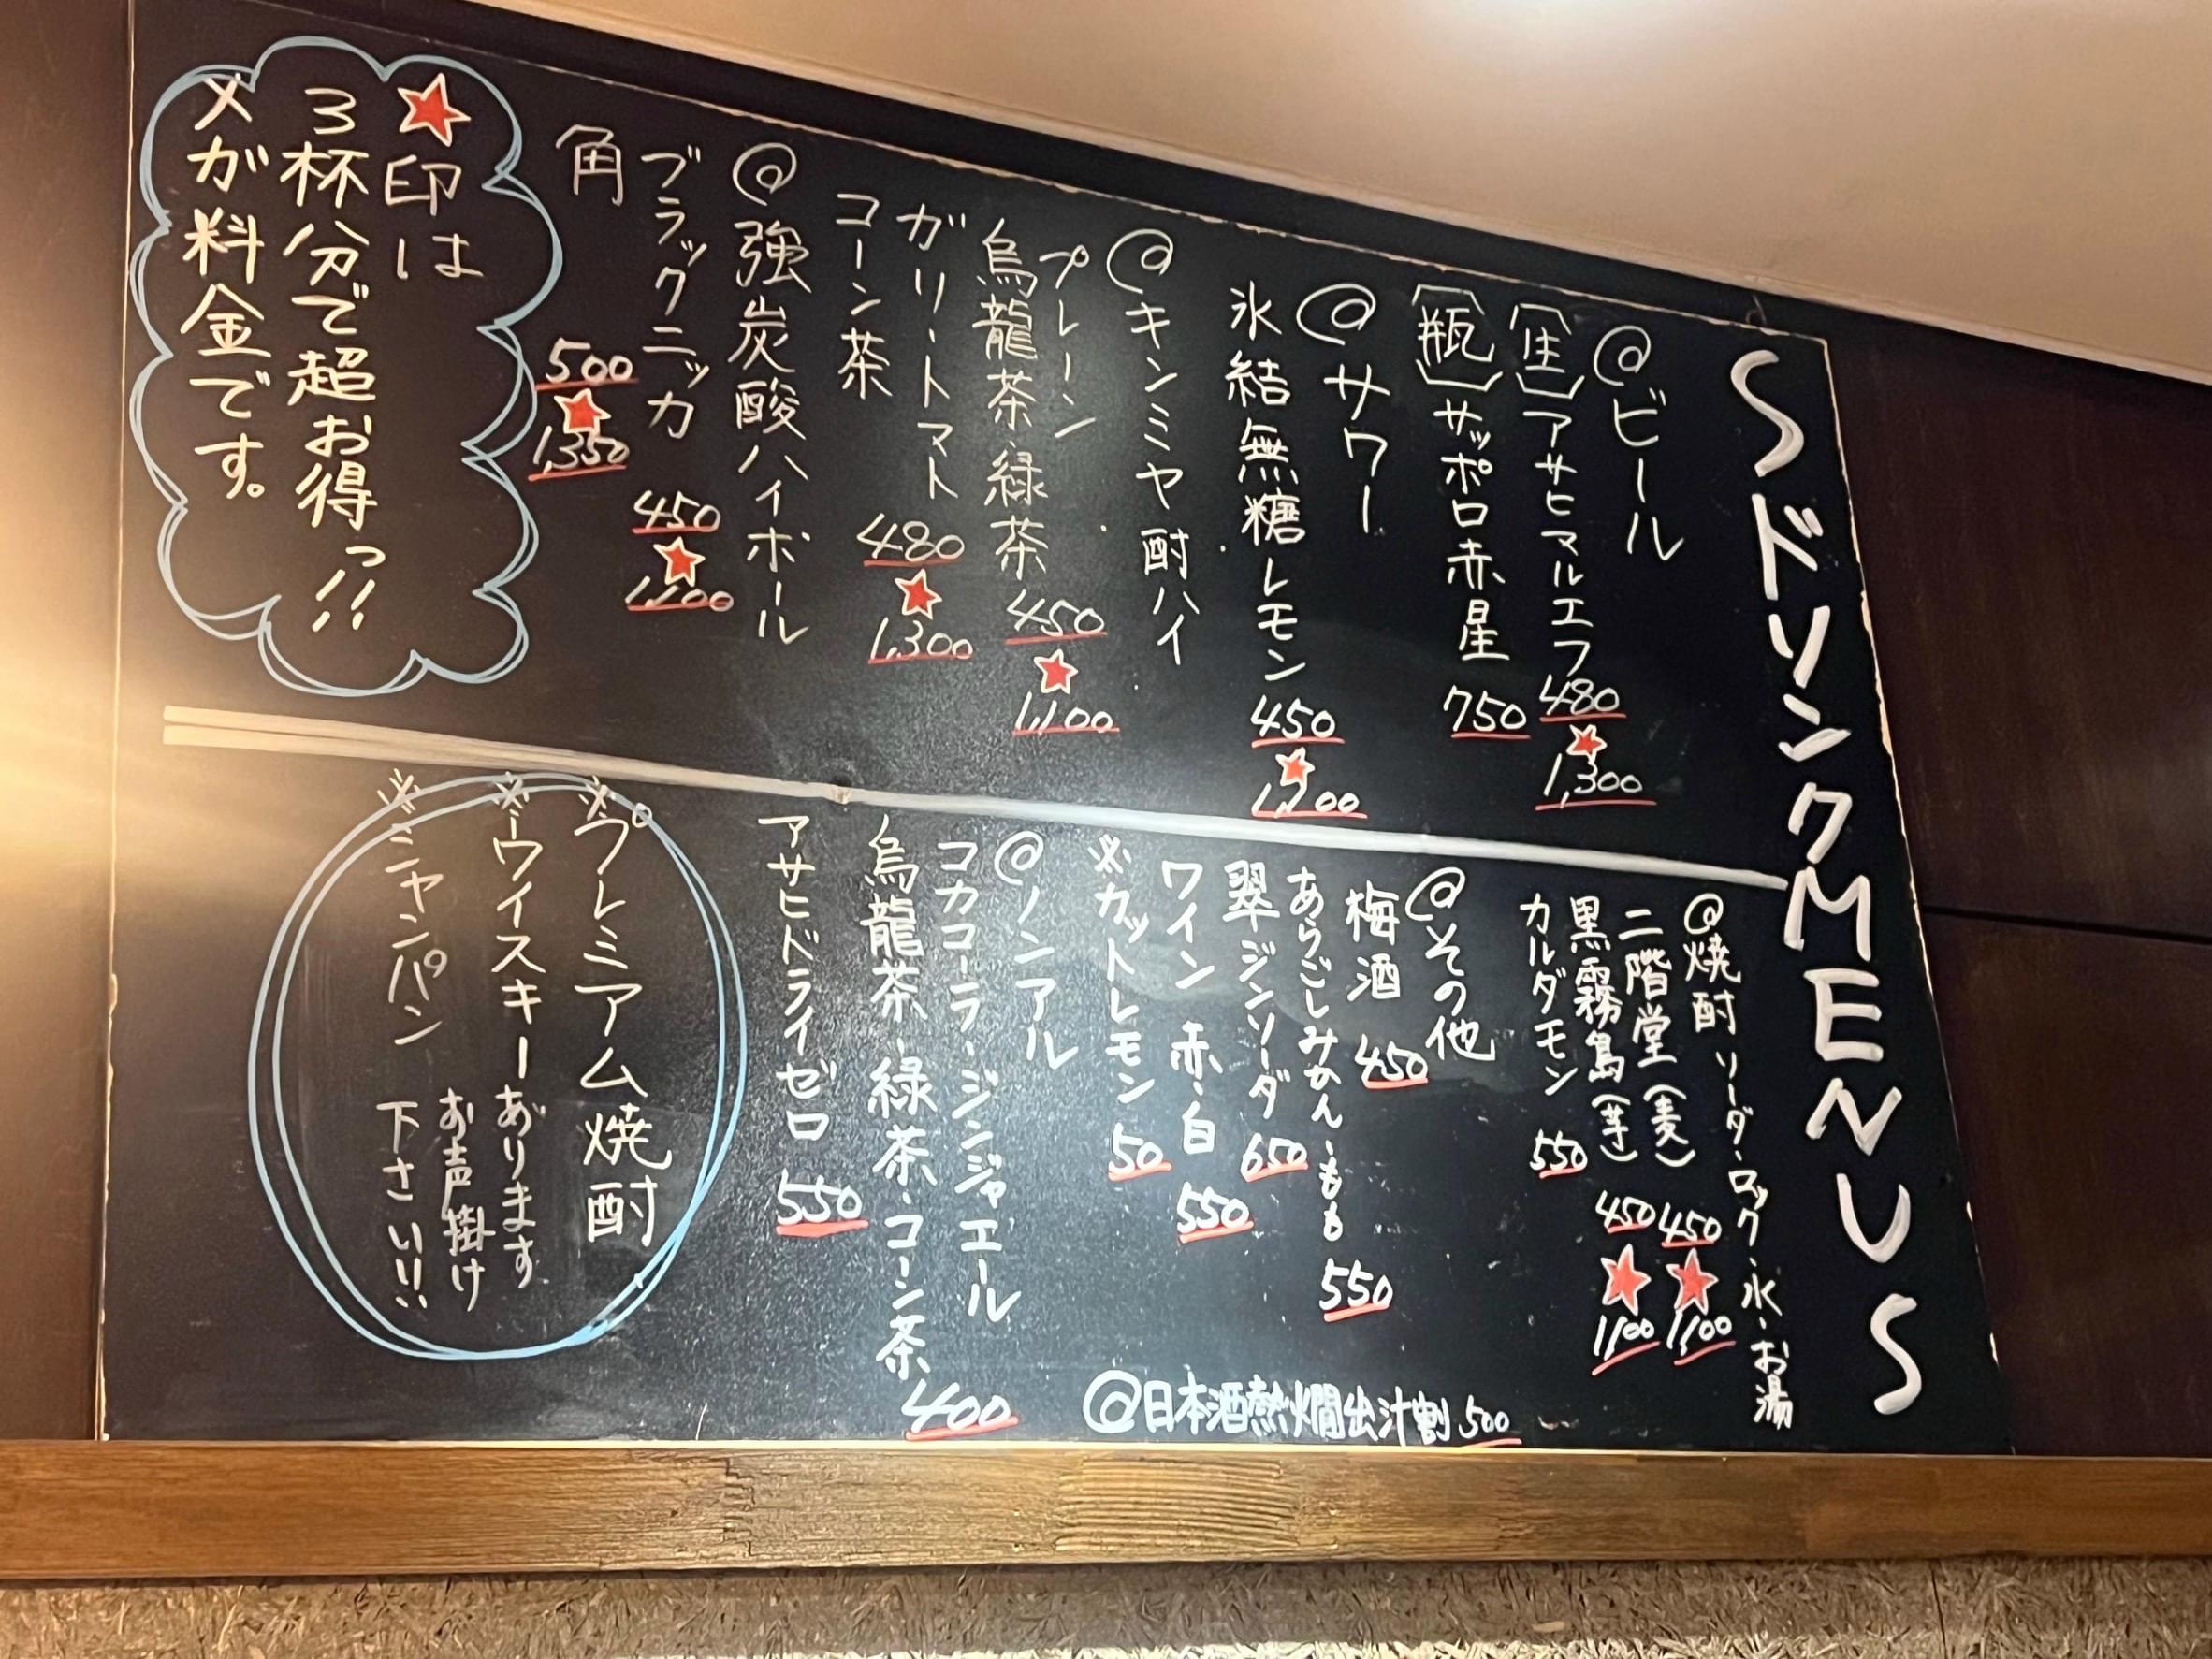 SドリンクMENUS
@ビール
〔生〕アサヒマルエフ 480 ★ 1,300
〔瓶〕サッポロ赤星 750
@サワー
氷結無糖レモン 450 ★ 1,200
@キンミヤ酎ハイ
プレーン
烏龍茶・緑茶 450 ★ 1,100
ガリ・トマト
コーン茶 480 ★ 1,300
@強炭酸ハイボール
ブラックニッカ 450 ★ 1,100
角 500 ★ 1,350
★印は
3杯分で超お得っ!!
メガ料金です。
@焼酎 ソーダ・ロック・水・お湯
二階堂(麦) 450 ★ 1,100
黒霧島(芋) 450 ★ 1100
カルダモン 550
@その他
梅酒 450
あらごしみかん・もも 550
翠ジンソーダ 650
ワイン 赤・白 550
※カットレモン 50
@ノンアル
コカコーラ・ジンジャエール
烏龍茶・緑茶・コーン茶 400
アサヒドライゼロ 550
@日本酒熱燗出汁割 500
※プレミアム焼酎
※ウイスキーあります
※シャンパン お声掛け
下さい!!